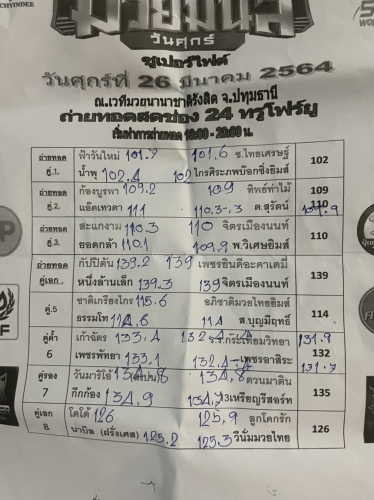 มวยมันส์
วันศุกร์
ซุปเปอร์ไฟต์
วันศุกร์ที่ 26 มีนาคม 2564
ณ.เวทีมวยนานาชาติรังสิต จ.ปทุมธานี
ถ่ายทอดสดช่อง 24 ทรูโฟร์ยู
เริ่มทำการถ่ายทอด 18:00 - 20:00 น.
ถ่ายทอด ฟ้าวันใหม่ 101.8 101.6 ช.ไทยเศรษฐ์ 102
คู่.1. น้ำพุ 102.4 102 ไกรศิระภพบ๊อกซิ่งยิมส์
ถ่ายทอด ก้องบูรพา 109.2 109 ทิพย์ท่าไม้ 109
คู่.2. แอ๊ดเทวดา 111 110.3-.3 ด.สุรัตน์ 110 109.9
ถ่ายทอด สะแกงาม 110.3 110 จิตรเมืองนนท์ 110
คู่.3. ยอดกล้า 110.1 109.9 พ.วิเศษยิมส์
ถ่ายทอด กัปปิตัน 139.2 139 เพชรยินดีอะคาเดมี่ 139
คู่เอก. หนึ่งล้านเล็ก 139.3 139 จิตรเมืองนนท์
คู่.5 ชาติเกรียงไกร 115.6 อภิชาติมวยไทยยิมส์ 114
ธรรมโท 114.6 114 ส.บุญมีฤทธิ์
คู่ค้ำ เก้าฉัตร 133.4 132.4 จ.กระเทียมวิทยา 131.9
6 เพชรพัทยา 133.1 132.4 เพชรอาสิระ 132 131.7
คู่รอง วันมาริโอ้ 134.8 134.8 ดวนมาดิน 135
7 กึกก้อง 134.9 134.7 13เหรียญรีสอร์ท
คู่เอก โตโต้ 126 125.9 ลูกโคกรัก 126
8 นาบิล (ฝรั่งเศส) 125.2 125.3 วีนั่มมวยไทย